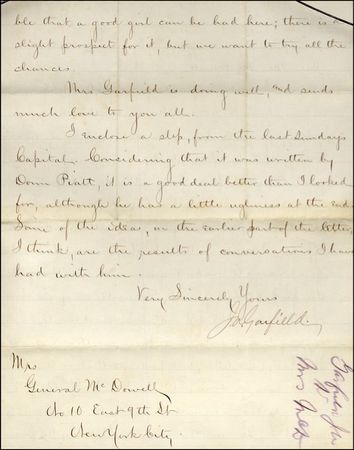 ble that a good girl can be had here; there is a
slight prospect for it, but we want to try all the
chances.
Mrs Garfield is doing well, and sends
much love to you all.
I inclose a slip, from the last Sundays
Capital. Considering that it was written by
Donn Piatt, it is a good deal better than I looked
for, although he has a little ugliness at the end.
Some of the ideas, in the earlier part of the letter,
I think, are the results of conversations I have
had with him.
Very Sincerely Yours
J A Garfield.
Mrs
General McDowell
No 10 East 9th St
New York City.
Garfield Ja
Mrs McD